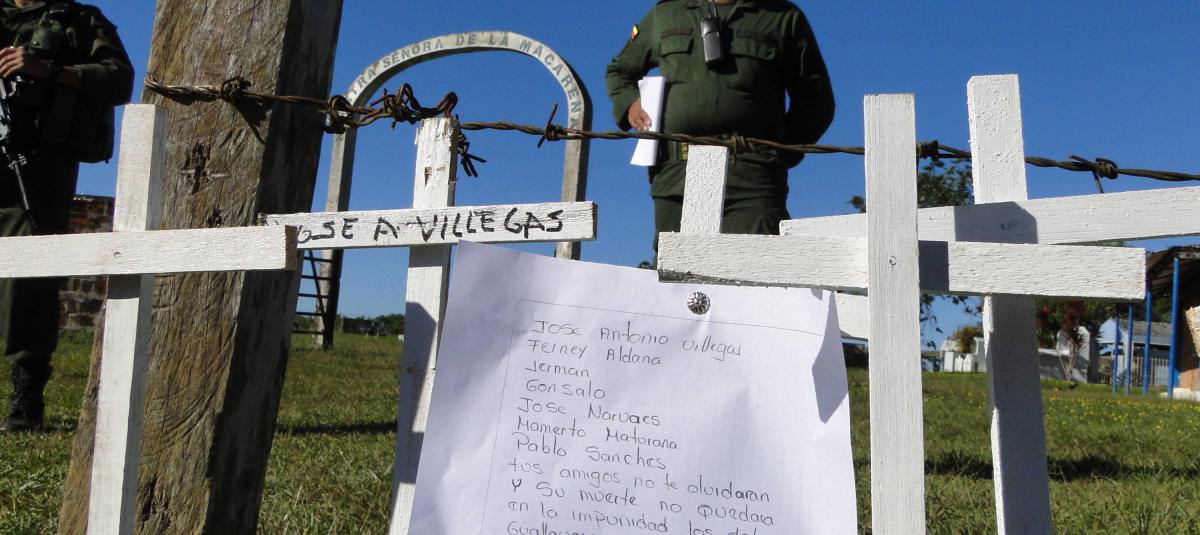 TRA SEÑORA DE LA MACAREN
JOSE A. VILLEGAS
Jose Antonio Villegas
Ferney Aldana
Jerman
Gonsalo
Jose Narvaes
Mamerto Maturana
Pablo Sanches
tus amigos no te olvidaran
Y Su muerte no quedara
en la impunidad los del